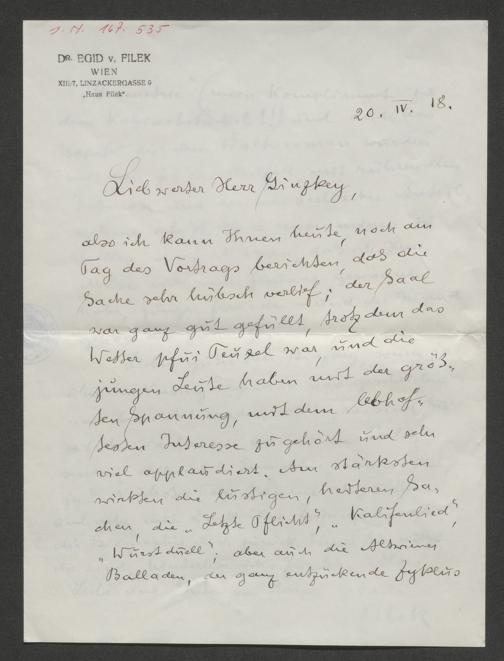 I. N. 167.535
DR. EGID v. FILEK
WIEN
XIII/7, LINZACKERGASSE 9
„Haus Filek"
20. IV. 18.
Liebwerter Herr Ginzkey,
also ich kann Ihnen heute, noch am
Tag des Vortrags berichten, daß die
Sache sehr hübsch verlief; der Saal
war ganz gut gefüllt, trotzdem das
Wetter pfui Teufel war, und die
jungen Leute haben mit der größ-
ten Spannung, mit dem lebhaf-
testen Interesse zugehört und sehr
viel applaudiert. Am stärksten
wirkten die lustigen, heiteren Sa-
chen, die „Letzte Pflicht", „Kalifenlied",
„Wurstduell"; aber auch die Altwiener
Balladen, der ganz entzückende Zyklus